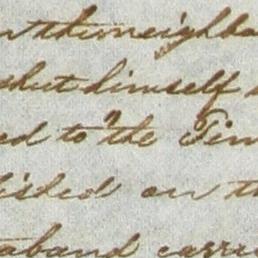 n the neighbo
shut himself
ed to "the Tim
isted on th
aband carri